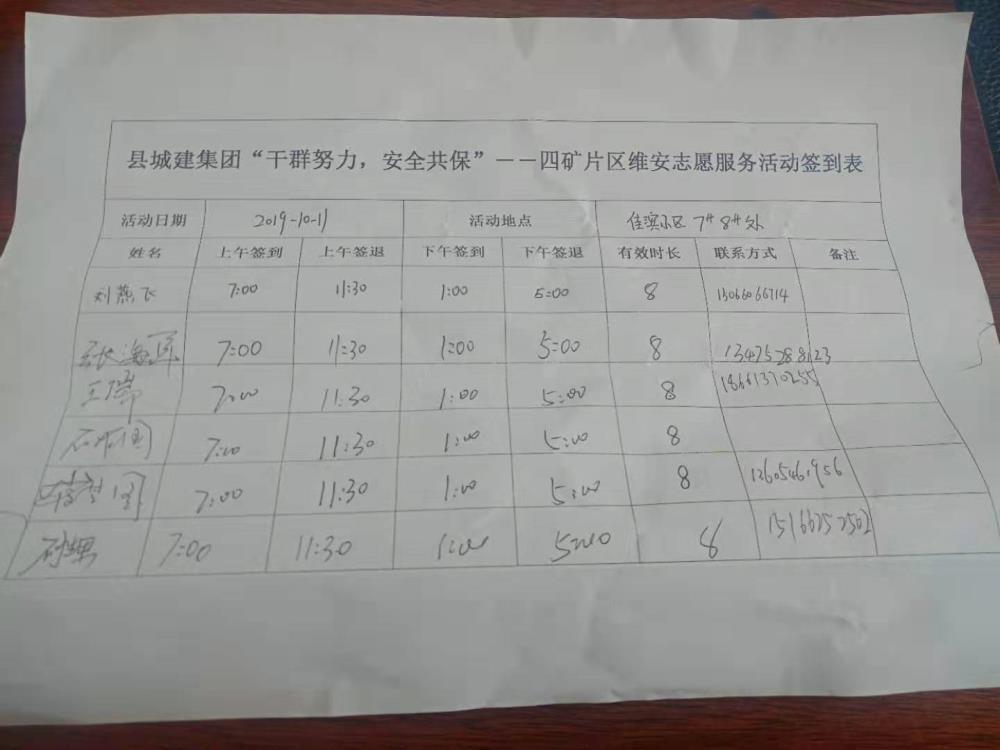 县城建集团“干群努力，安全共保”——四矿片区维安志愿服务活动签到表
活动日期 2019-10-11 活动地点 佳滨小区 7# 8# 处
姓名 上午签到 上午签退 下午签到 下午签退 有效时长 联系方式 备注
刘燕飞 7:00 11:30 1:00 5:00 8 15066066714
张海 7:00 11:30 1:00 5:00 8 13475288123
王瑞 7:00 11:30 1:00 5:00 8 18661370255
7:00 11:30 1:00 5:00 8
7:00 11:30 1:00 5:00 8
7:00 11:30 1:00 5:00 8